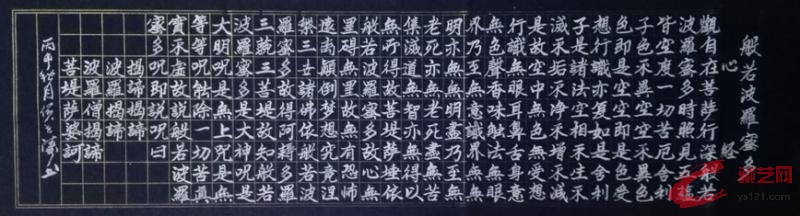 般若波羅蜜多
心經
觀自在菩薩行深般若
波羅蜜多時照見五蘊
皆空度一切苦厄舍利
子色不異空空不異色
色即是空空即是色受
想行識亦復如是舍利
子是諸法空相不生不
滅不垢不淨不增不減
是故空中無色無受想
行識無眼耳鼻舌身意
無色聲香味觸法無眼
界乃至無意識界無無
明亦無無明盡乃至無
老死亦無老死盡無苦
集滅道無智亦無得以
無所得故菩提薩埵依
般若波羅蜜多故心無
罣礙無罣礙故無有恐怖
遠離顛倒夢想究竟涅
槃三世諸佛依般若波
羅蜜多故得阿耨多羅
三藐三菩提故知般若
波羅蜜多是大神咒是
大明咒是無上咒是無
等等咒能除一切苦真
實不虛故說般若波羅
蜜多咒即說咒曰
揭諦揭諦
波羅揭諦
波羅僧揭諦
菩提薩婆訶
丙申
艺网
ys121.com